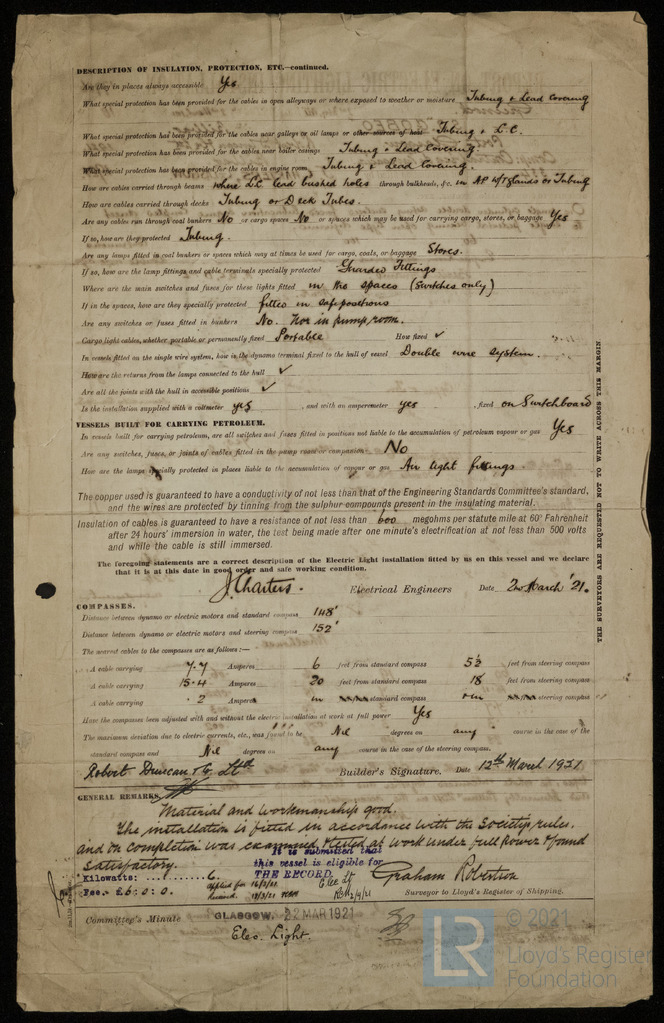 DESCRIPTION OF INSULATION, PROTECTION, ETC.—continued.
Are they in places always accessible Yes
What special protection has been provided for the cables in open alleyways or where exposed to weather or moisture Tubing & Lead Covering
What special protection has been provided for the cables near galleys or oil lamps or other sources of heat Tubing & L.C.
What special protection has been provided for the cables near boiler casings Tubing & Lead Covering.
What special protection has been provided for the cables in engine room Tubing & Lead Covering.
How are cables carried through beams where L.C. lead bushed holes through bulkheads, &c. in AP WT glands or Tubing
How are cables carried through decks Tubing or Deck Tubes.
Are any cables run through coal bunkers No or cargo spaces No or spaces which may be used for carrying cargo, stores, or baggage Yes
If so, how are they protected Tubing.
Are any lamps fitted in coal bunkers or spaces which may at times be used for cargo, coals, or baggage Stores.
If so, how are the lamp fittings and cable terminals specially protected Guarded Fittings
Where are the main switches and fuses for these lights fitted in the spaces (switches only)
If in the spaces, how are they specially protected fitted in safe positions
Are any switches or fuses fitted in bunkers No. Nor in pump room.
Cargo light cables, whether portable or permanently fixed Portable How fixed ✓
In vessels fitted on the single wire system, how is the dynamo terminal fixed to the hull of vessel Double wire system.
How are the returns from the lamps connected to the hull ✓
Are all the joints with the hull in accessible positions ✓
Is the installation supplied with a voltmeter yes , and with an amperemeter yes , fixed on Switchboard
VESSELS BUILT FOR CARRYING PETROLEUM.
In vessels built for carrying petroleum, are all switches and fuses fitted in positions not liable to the accumulation of petroleum vapour or gas Yes
Are any switches, fuses, or joints of cables fitted in the pump room or companion No
How are the lamps specially protected in places liable to the accumulation of vapour or gas Air tight fittings
The copper used is guaranteed to have a conductivity of not less than that of the Engineering Standards Committee's standard,
and the wires are protected by tinning from the sulphur compounds present in the insulating material.
Insulation of cables is guaranteed to have a resistance of not less than 600 megohms per statute mile at 60° Fahrenheit
after 24 hours' immersion in water, the test being made after one minute's electrification at not less than 500 volts
and while the cable is still immersed.
The foregoing statements are a correct description of the Electric Light installation fitted by us on this vessel and we declare
that it is at this date in good order and safe working condition.
J. Charters. Electrical Engineers Date 2nd March '21.
COMPASSES.
Distance between dynamo or electric motors and standard compass 148'
Distance between dynamo or electric motors and steering compass 152'
The nearest cables to the compasses are as follows:—
A cable carrying 7.7 Amperes 6 feet from standard compass 5½ feet from steering compass
A cable carrying 15.4 Amperes 20 feet from standard compass 18 feet from steering compass
A cable carrying .2 Amperes in standard compass & in steering compass
Have the compasses been adjusted with and without the electric installation at work at full power Yes
The maximum deviation due to electric currents, etc., was found to be Nil degrees on any course in the case of the
standard compass and Nil degrees on any course in the case of the steering compass.
Robert Duncan & Co Ltd Builder's Signature. Date 12th March 1921
GENERAL REMARKS.
Material and workmanship good.
The installation is fitted in accordance with the Society's rules,
and on completion was examined & tested at work under full power & found
satisfactory.
It is submitted that
this vessel is eligible for
THE RECORD. Elec Lt
Kilowatts: 6
Fee. £6:0:0 Applied for 16/3/21
Graham Robertson
Surveyor to Lloyd's Register of Shipping.
Committee's Minute GLASGOW. 22 MAR 1921
Elec. Light.
THE SURVEYORS ARE REQUESTED NOT TO WRITE ACROSS THIS MARGIN
LR
© 2021
Lloyd's Register
Foundation